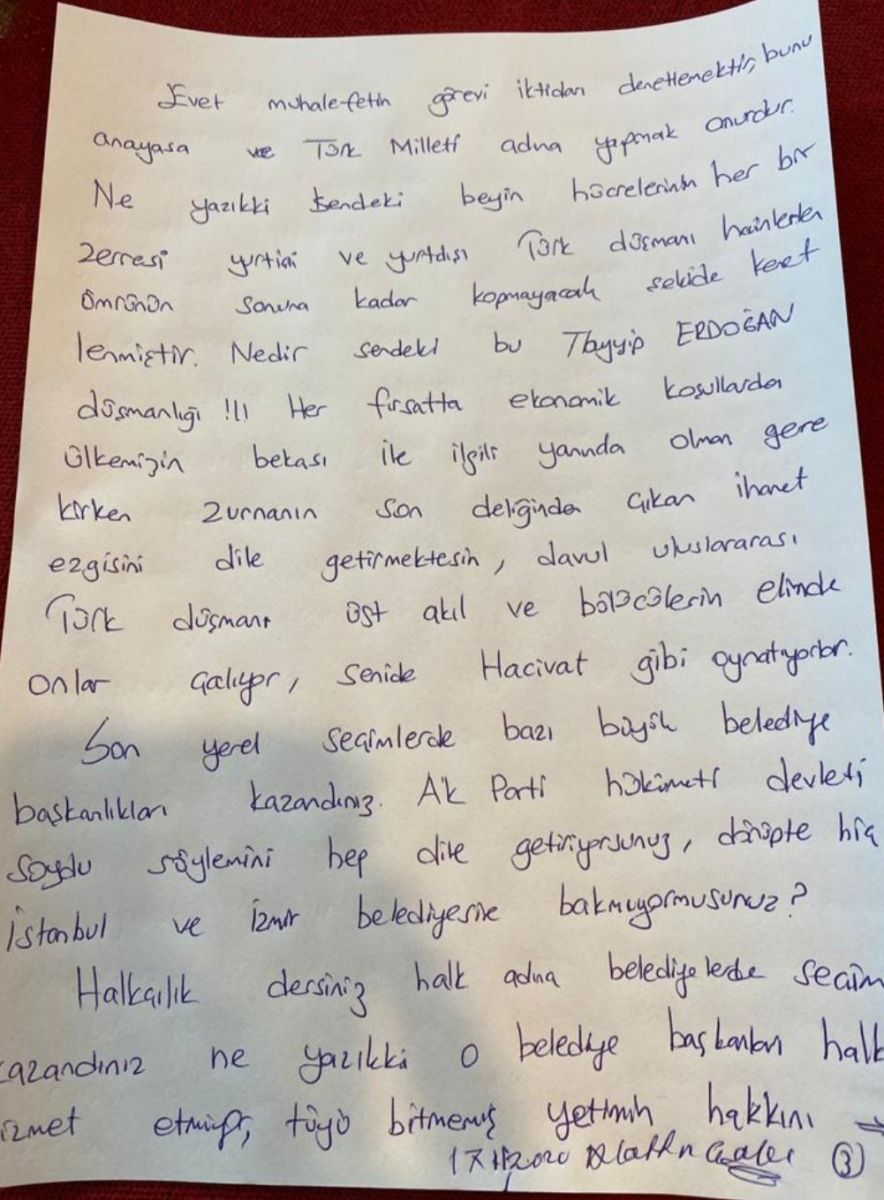 Evet muhalefetin görevi iktidarı denetlemektir, bunu
anayasa ve Türk Milleti adına yapmak onurdur.
Ne yazıkki sendeki beyin hücrelerinin her bir
zerresi yurtiçi ve yurtdışı Türk düşmanı hainlerden
ömrünün sonuna kadar kopmayacak şekilde kenet
lenmiştir. Nedir sendeki bu Tayyip ERDOĞAN
düşmanlığı !!! Her fırsatta ekonomik koşullarda
ülkemizin bekası ile ilgili yanında olman gere
kirken zurnanın son deliğinden çıkan ihanet
ezgisini dile getirmektesin, davul uluslararası
Türk düşmanı üst akıl ve bölücülerin elinde
onlar çalıyor, senide Hacivat gibi oynatıyorlar.
Son yerel seçimlerde bazı büyük belediye
başkanlıkları kazandınız. AK Parti hükümeti devleti
soydu söylemini hep dile getiriyorsunuz, dönüpte hiç
İstanbul ve İzmir belediyesine bakmıyormusunuz?
Halkçılık dersiniz halk adına belediyelerde seçim
kazandınız ne yazıkki o belediye başkanları halk
izmet etmiyor, tüyü bitmemiş yetimin hakkını →
2020 Alattin 3